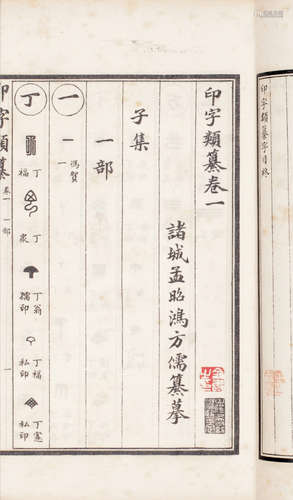 印字類纂字目終
印字類纂卷一
諸城孟昭鴻方儒纂摹
子集
一部
一
一 馮賀
一
丁
丁福
丁泉
丁翁孺印
丁福私印
丁憲私印
印字類纂
卷一 一部
一